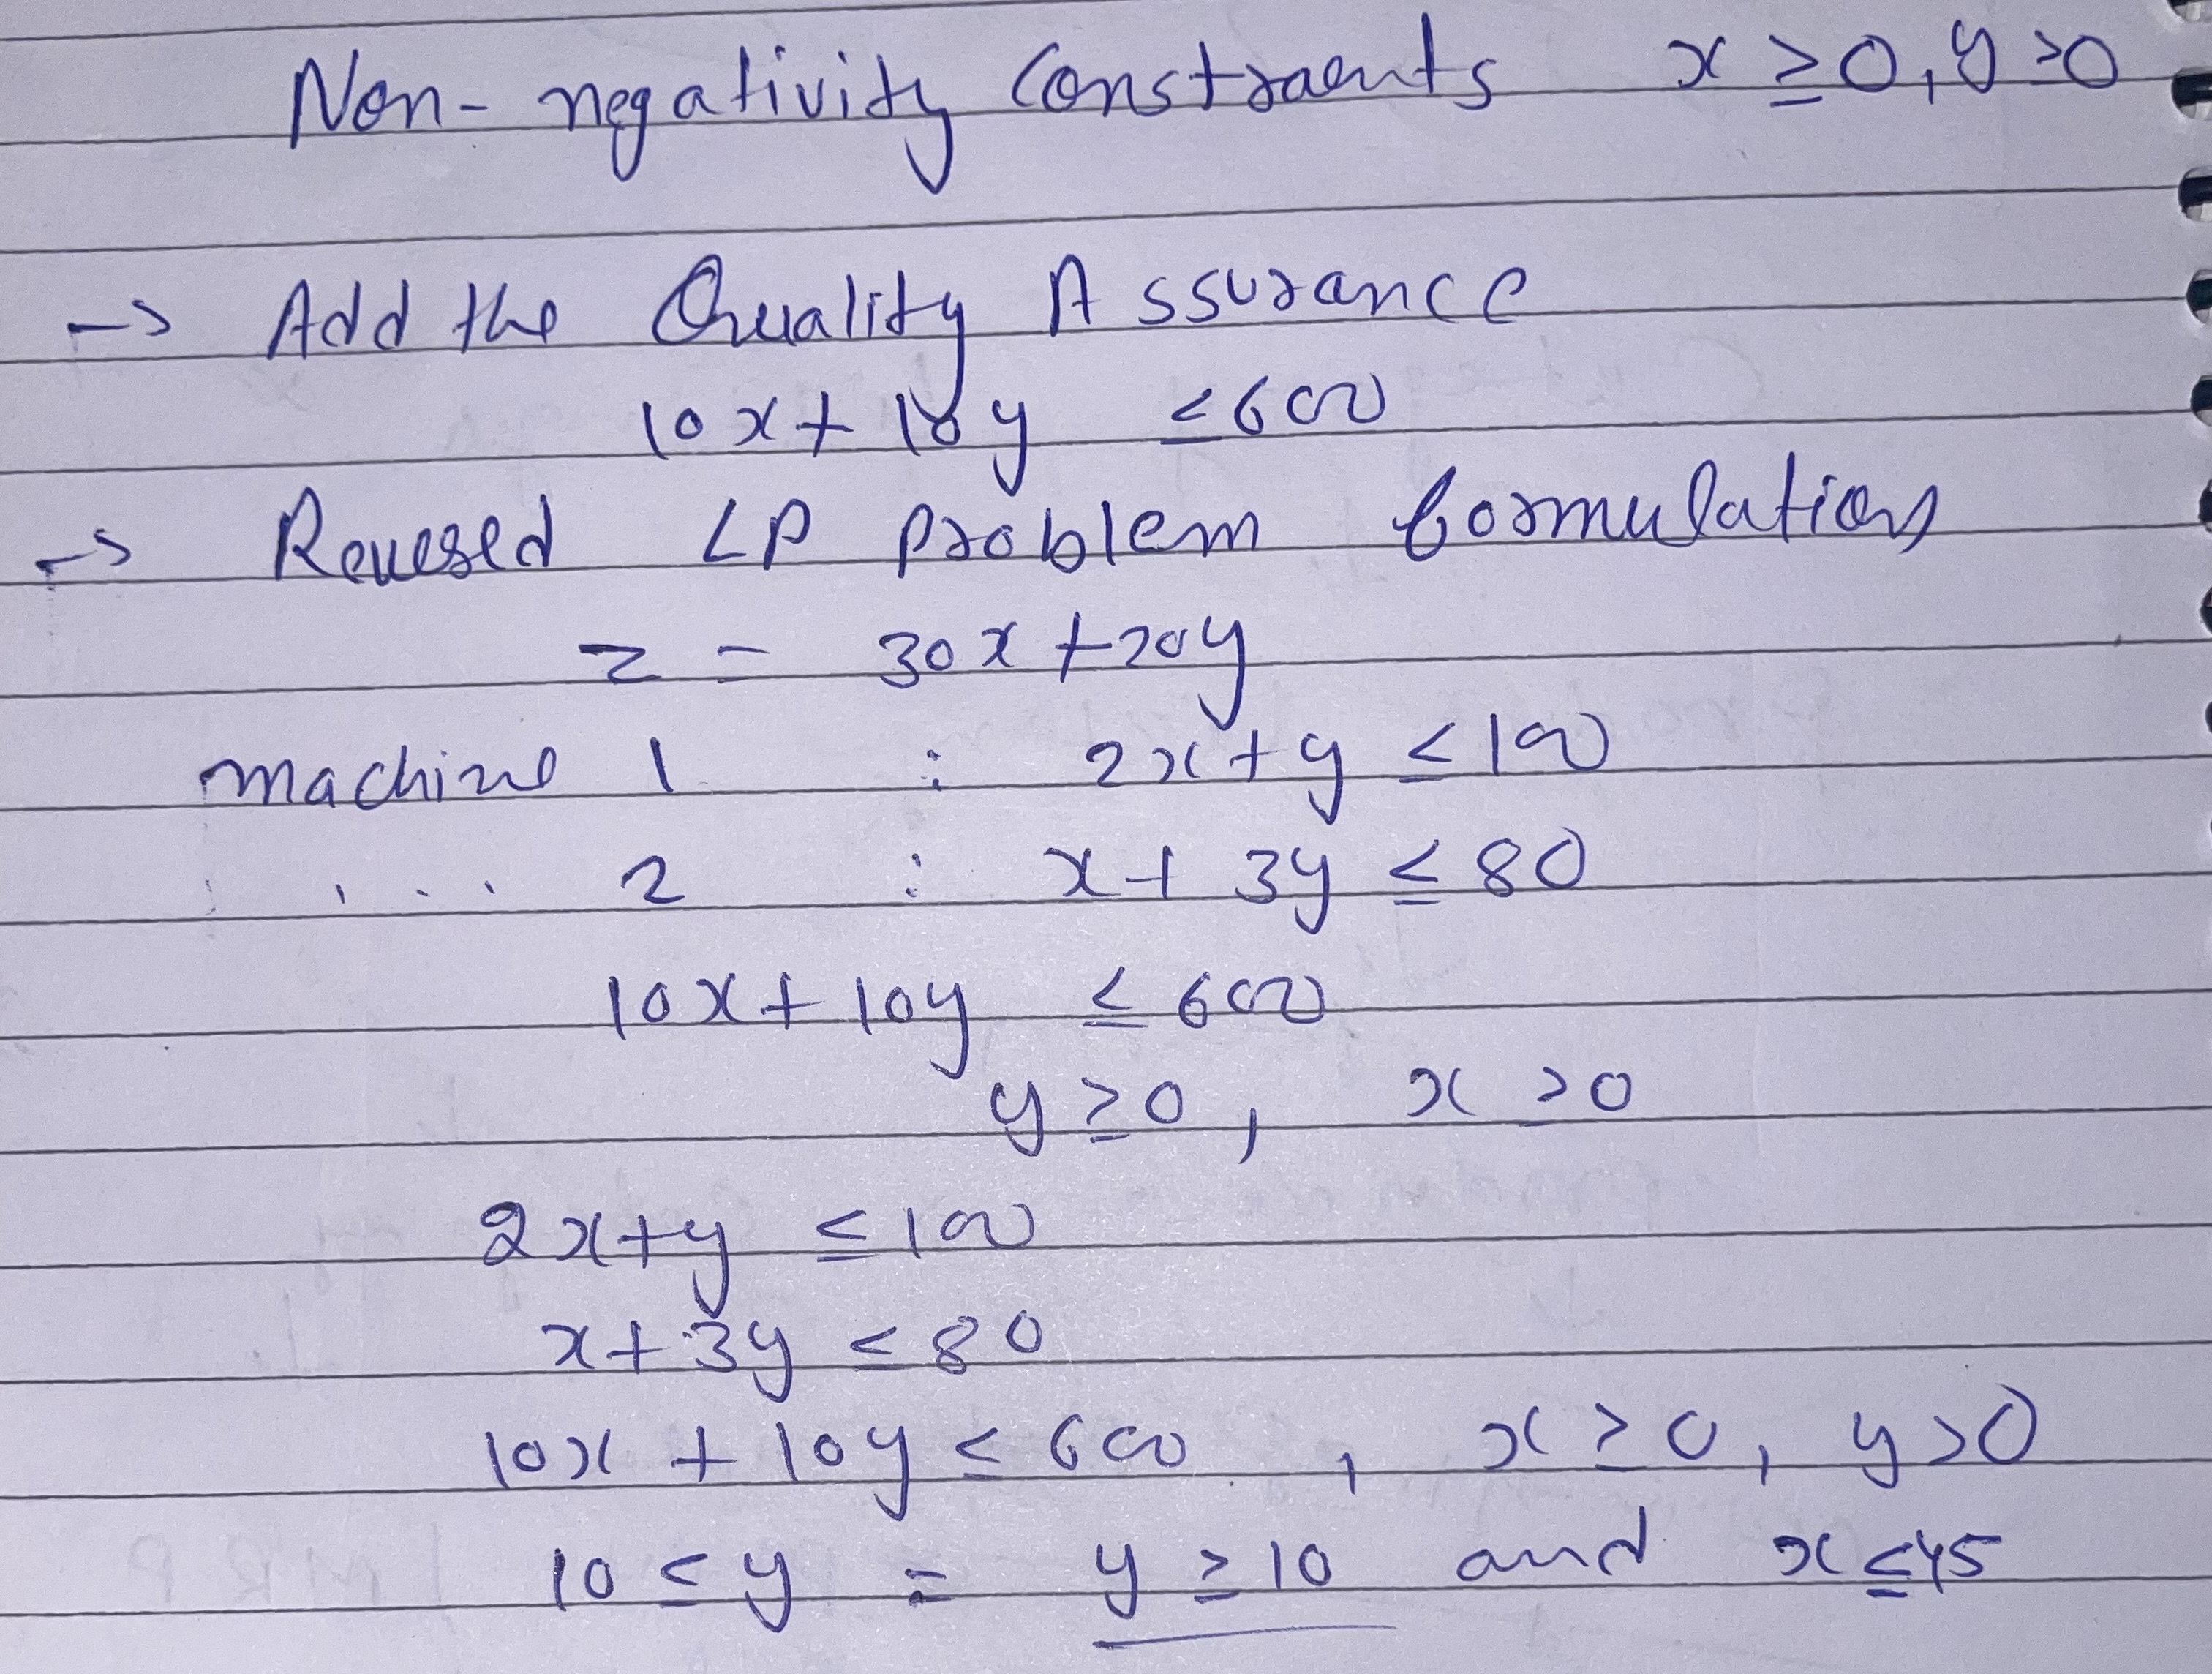 Non-negativity Constraents x ≥ 0, y > 0
→ Add the Quality Assurance
10x + 10y ≤ 600
→ Revesed LP problem formulation
z = 30x + 20y
machine 1 : 2x + y ≤ 100
2 : x + 3y ≤ 80
10x + 10y ≤ 600
y ≥ 0, x > 0
2x + y ≤ 100
x + 3y ≤ 80
10x + 10y ≤ 600, x ≥ 0, y > 0
10 ≤ y = y ≥ 10 and x ≤ 45